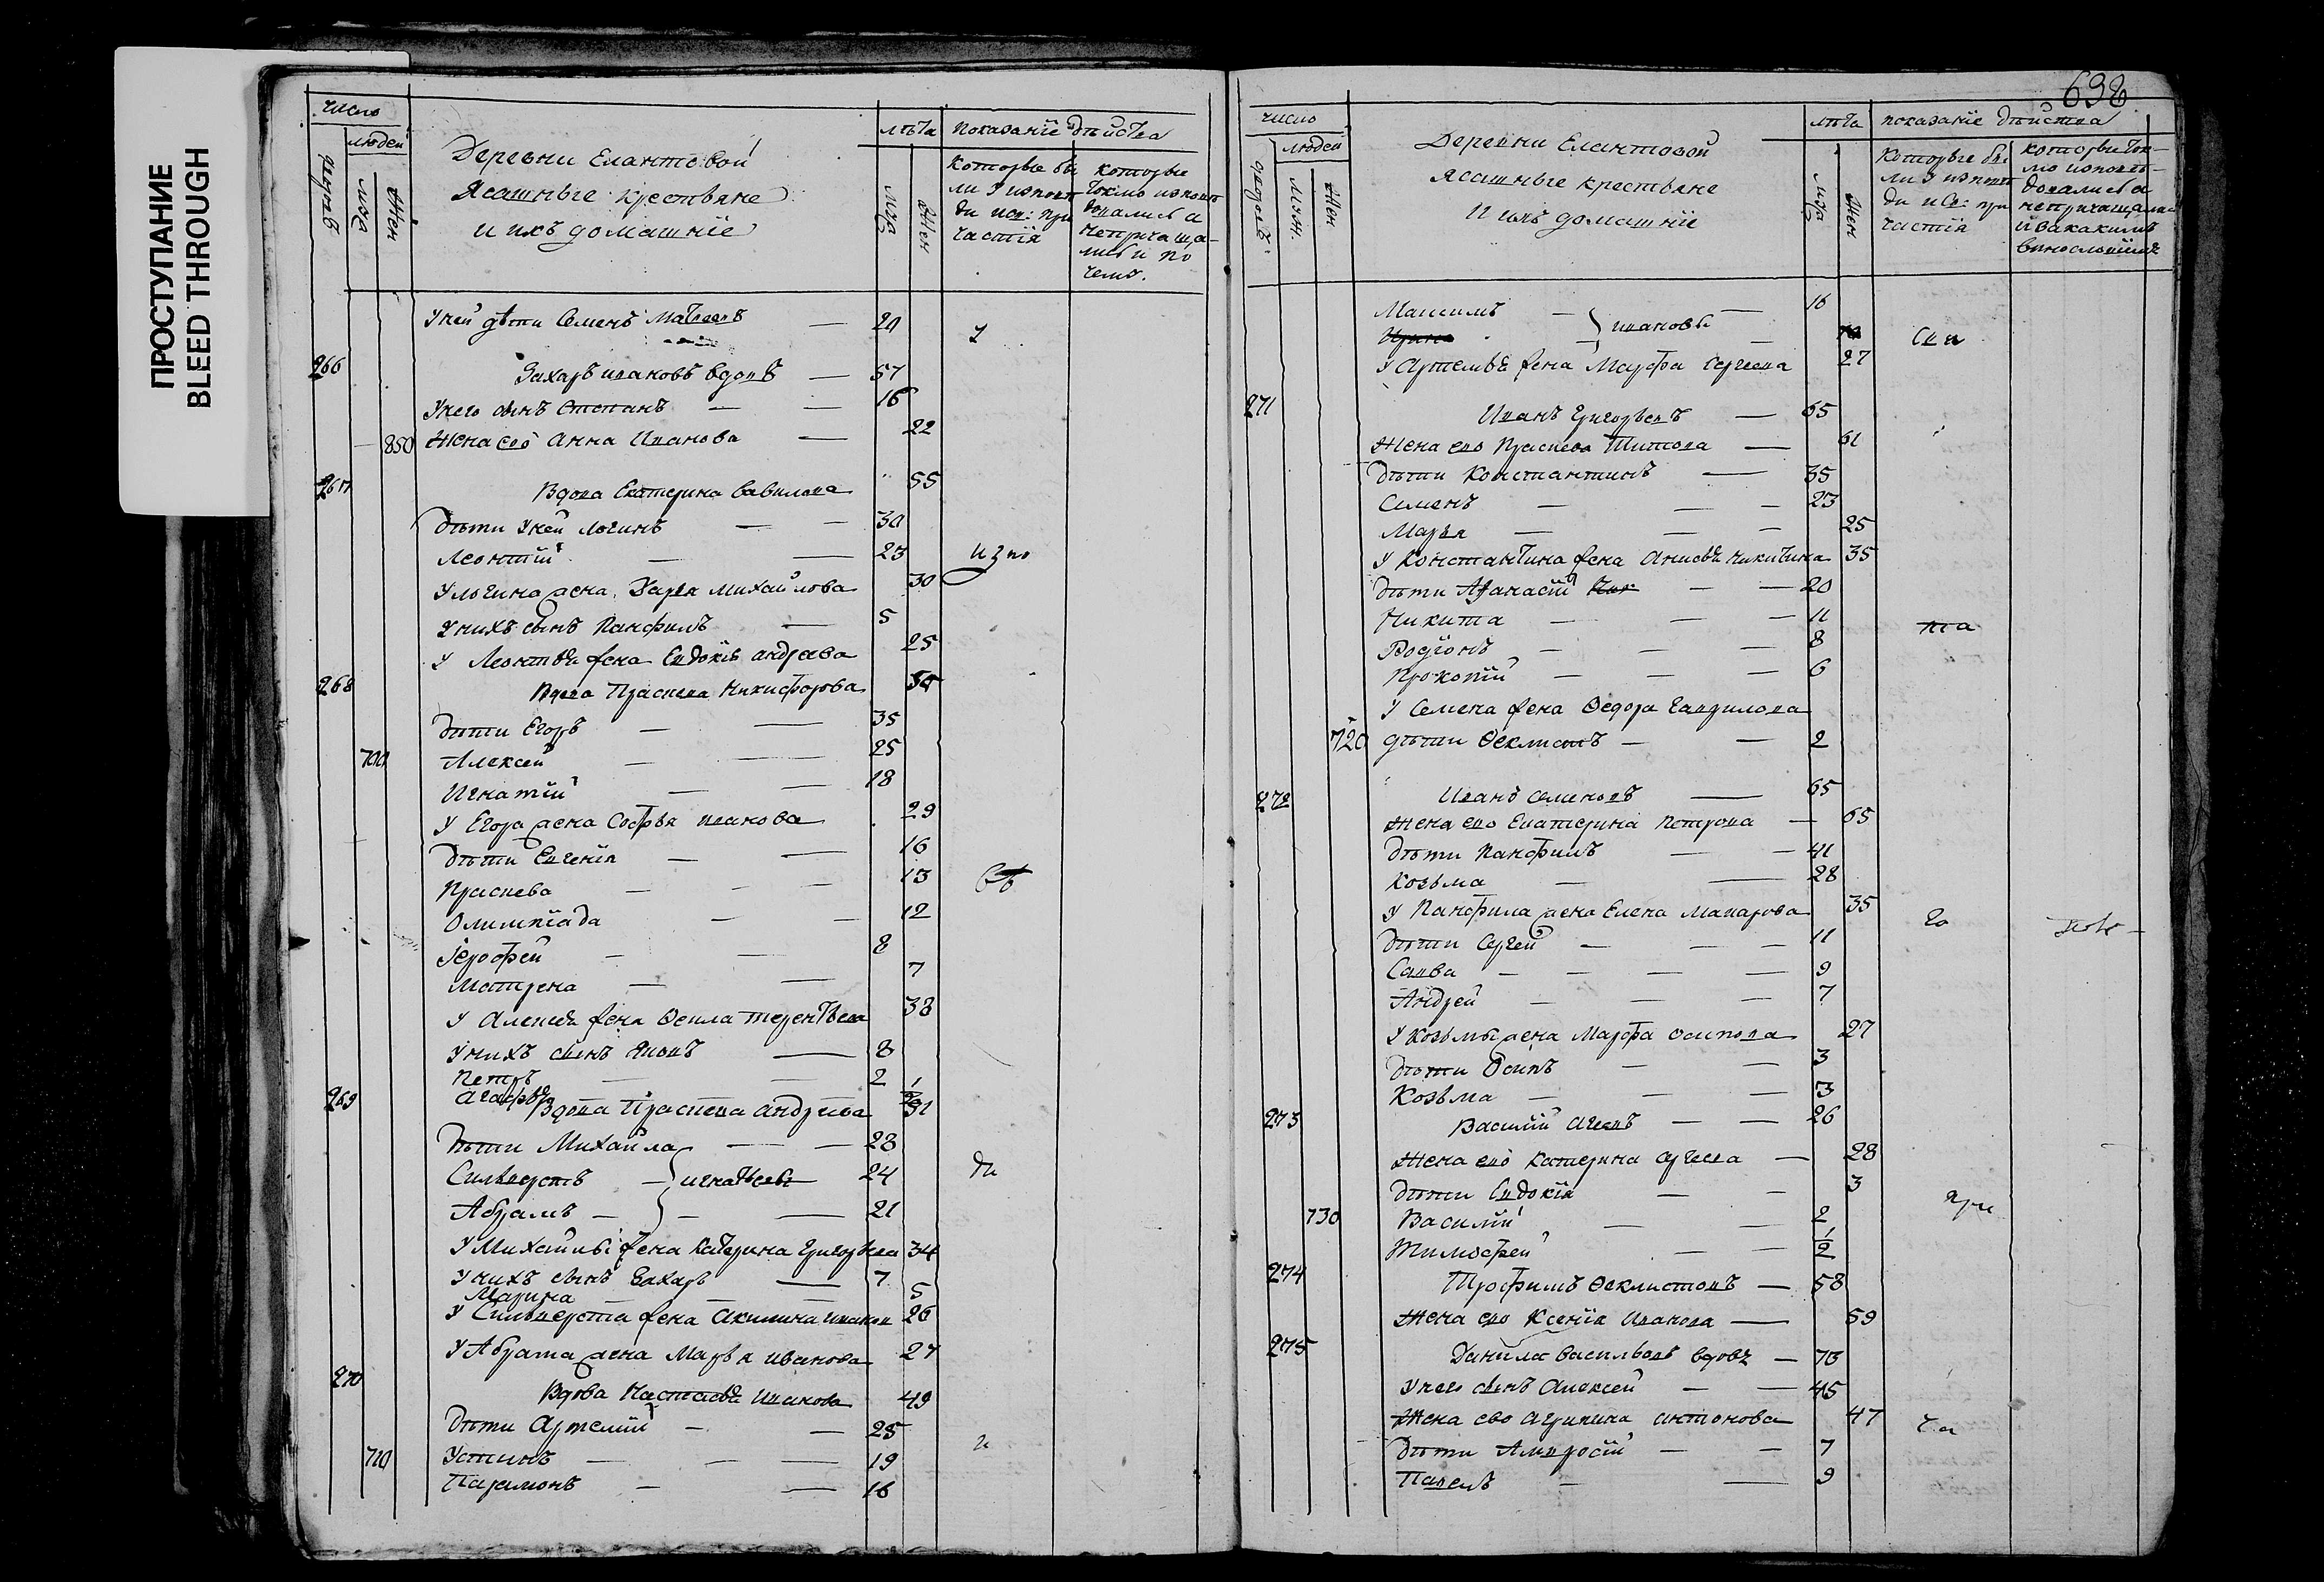 ПРОСТУПАНИЕ
BLEED THROUGH
число
людей
дворовъ
муз
жен
Деревни Елантовой
Ясашные крестьяне
и ихъ домашніе
лѣта
муз
жен
показаніе дѣйства
которые бы
ли у исповѣ
ди и св: при
частія
которые
токмо исповѣ
довались а
непричаща-
лись и по
чему.
У ней дѣти Семенъ Матвеевъ — 20
у
266 Захаръ ивановъ вдовъ — 57
У него сынъ Степанъ — — 16
850 Жена ево Анна Иванова — 22
267 Вдова Екатерина Савилова 55
Дѣти у ней Логинъ — — 30
Леонтій — — 23
испо
У логина жена Дарья Михайлова 30
У нихъ сынъ Панфилъ — 5
У Леонтья жена Евдокія андреева 25
268 Вдова Праскева Никифорова 54
Дѣти Егоръ — — 35
700 Алексей — — 25
Игнатій — — 18
У Егора жена Софья иванова 29
Дѣти Евгенія — — 16
Праскева — — — 13
вѣ
Олимпіада — — 12
Іерофей — — 8
Матрена — — 7
У Алексѣя жена Ѳекла терентьева 38
У нихъ сынъ Яковъ — 8
Петръ — — 2
Агафья — — 1/2
269 Вдова Праскева андреева 51
Дѣти Михайла — — 28
Сильверстъ — игнатьевы 24
ди
Абрамъ — — — 21
У Михайлы жена Катерина Григорьева 34
У нихъ сынъ Захаръ — 7
Марина — — — 5
У Сильверста жена Акилина иванов 26
У Абрама жена Марья иванова 27
270 Вдова Настасья Иванова 49
Дѣти Артемій — — 25
и
710 Устинъ — — — 19
Парамонъ — — 16
698
число
людей
дворовъ
муж.
жен
Деревни Елантовой
ясашные крестьяне
И ихъ домашніе
лѣта
муз
жен
показаніе дѣйства
которые бы
ли у исповѣ
ди и св: при
частія
которые ток-
мо исповѣ-
довались а
непричащались
и за какимъ
винословіемъ
Максимъ — } ивановы — 16
Ирина
свя
У Артемья жена Марфа Сергеева 27
271 Иванъ Григорьевъ — 65
Жена ево Праскева Титова — 61
Дѣти Константинъ — 35
Семенъ — — — 23
Марья — — 25
У Константина жена Анисья никитина 35
Дѣти Афанасій — — 20
Никита — — — 11
та
Родіонъ — — — 8
Прокопій — — — 6
У Семена жена Ѳедора Гаврилова
720 дѣти Ѳеклистъ — — 2
272 Иванъ семеновъ — 65
Жена ево Екатерина Петрова — 65
Дѣти Панфилъ — — 41
Козьма — — 28
У Панфила жена Елена Макарова 35
го
Дѣти Сергей — — — 11
Савва — — — — 9
Андрей — — — 7
У Козьмы жена Марфа осипова 27
Дѣти Осипъ — — 3
Козьма — — — 3
273 Василій Агеевъ — — 26
Жена ево Катерина сергеева — 28
Дѣти Евдокія — — 3
при
730 Василій — — 2
Тимофей — — 1/2
274 Трофимъ Ѳеклистовъ — 58
Жена ево Ксенія Иванова — 59
275 Данила васильевъ вдовъ — 73
У него сынъ Алексей — — 45
Жена ево агрипина антонова 47
ча
Дѣти Амвросій — — 7
Павелъ — — 9